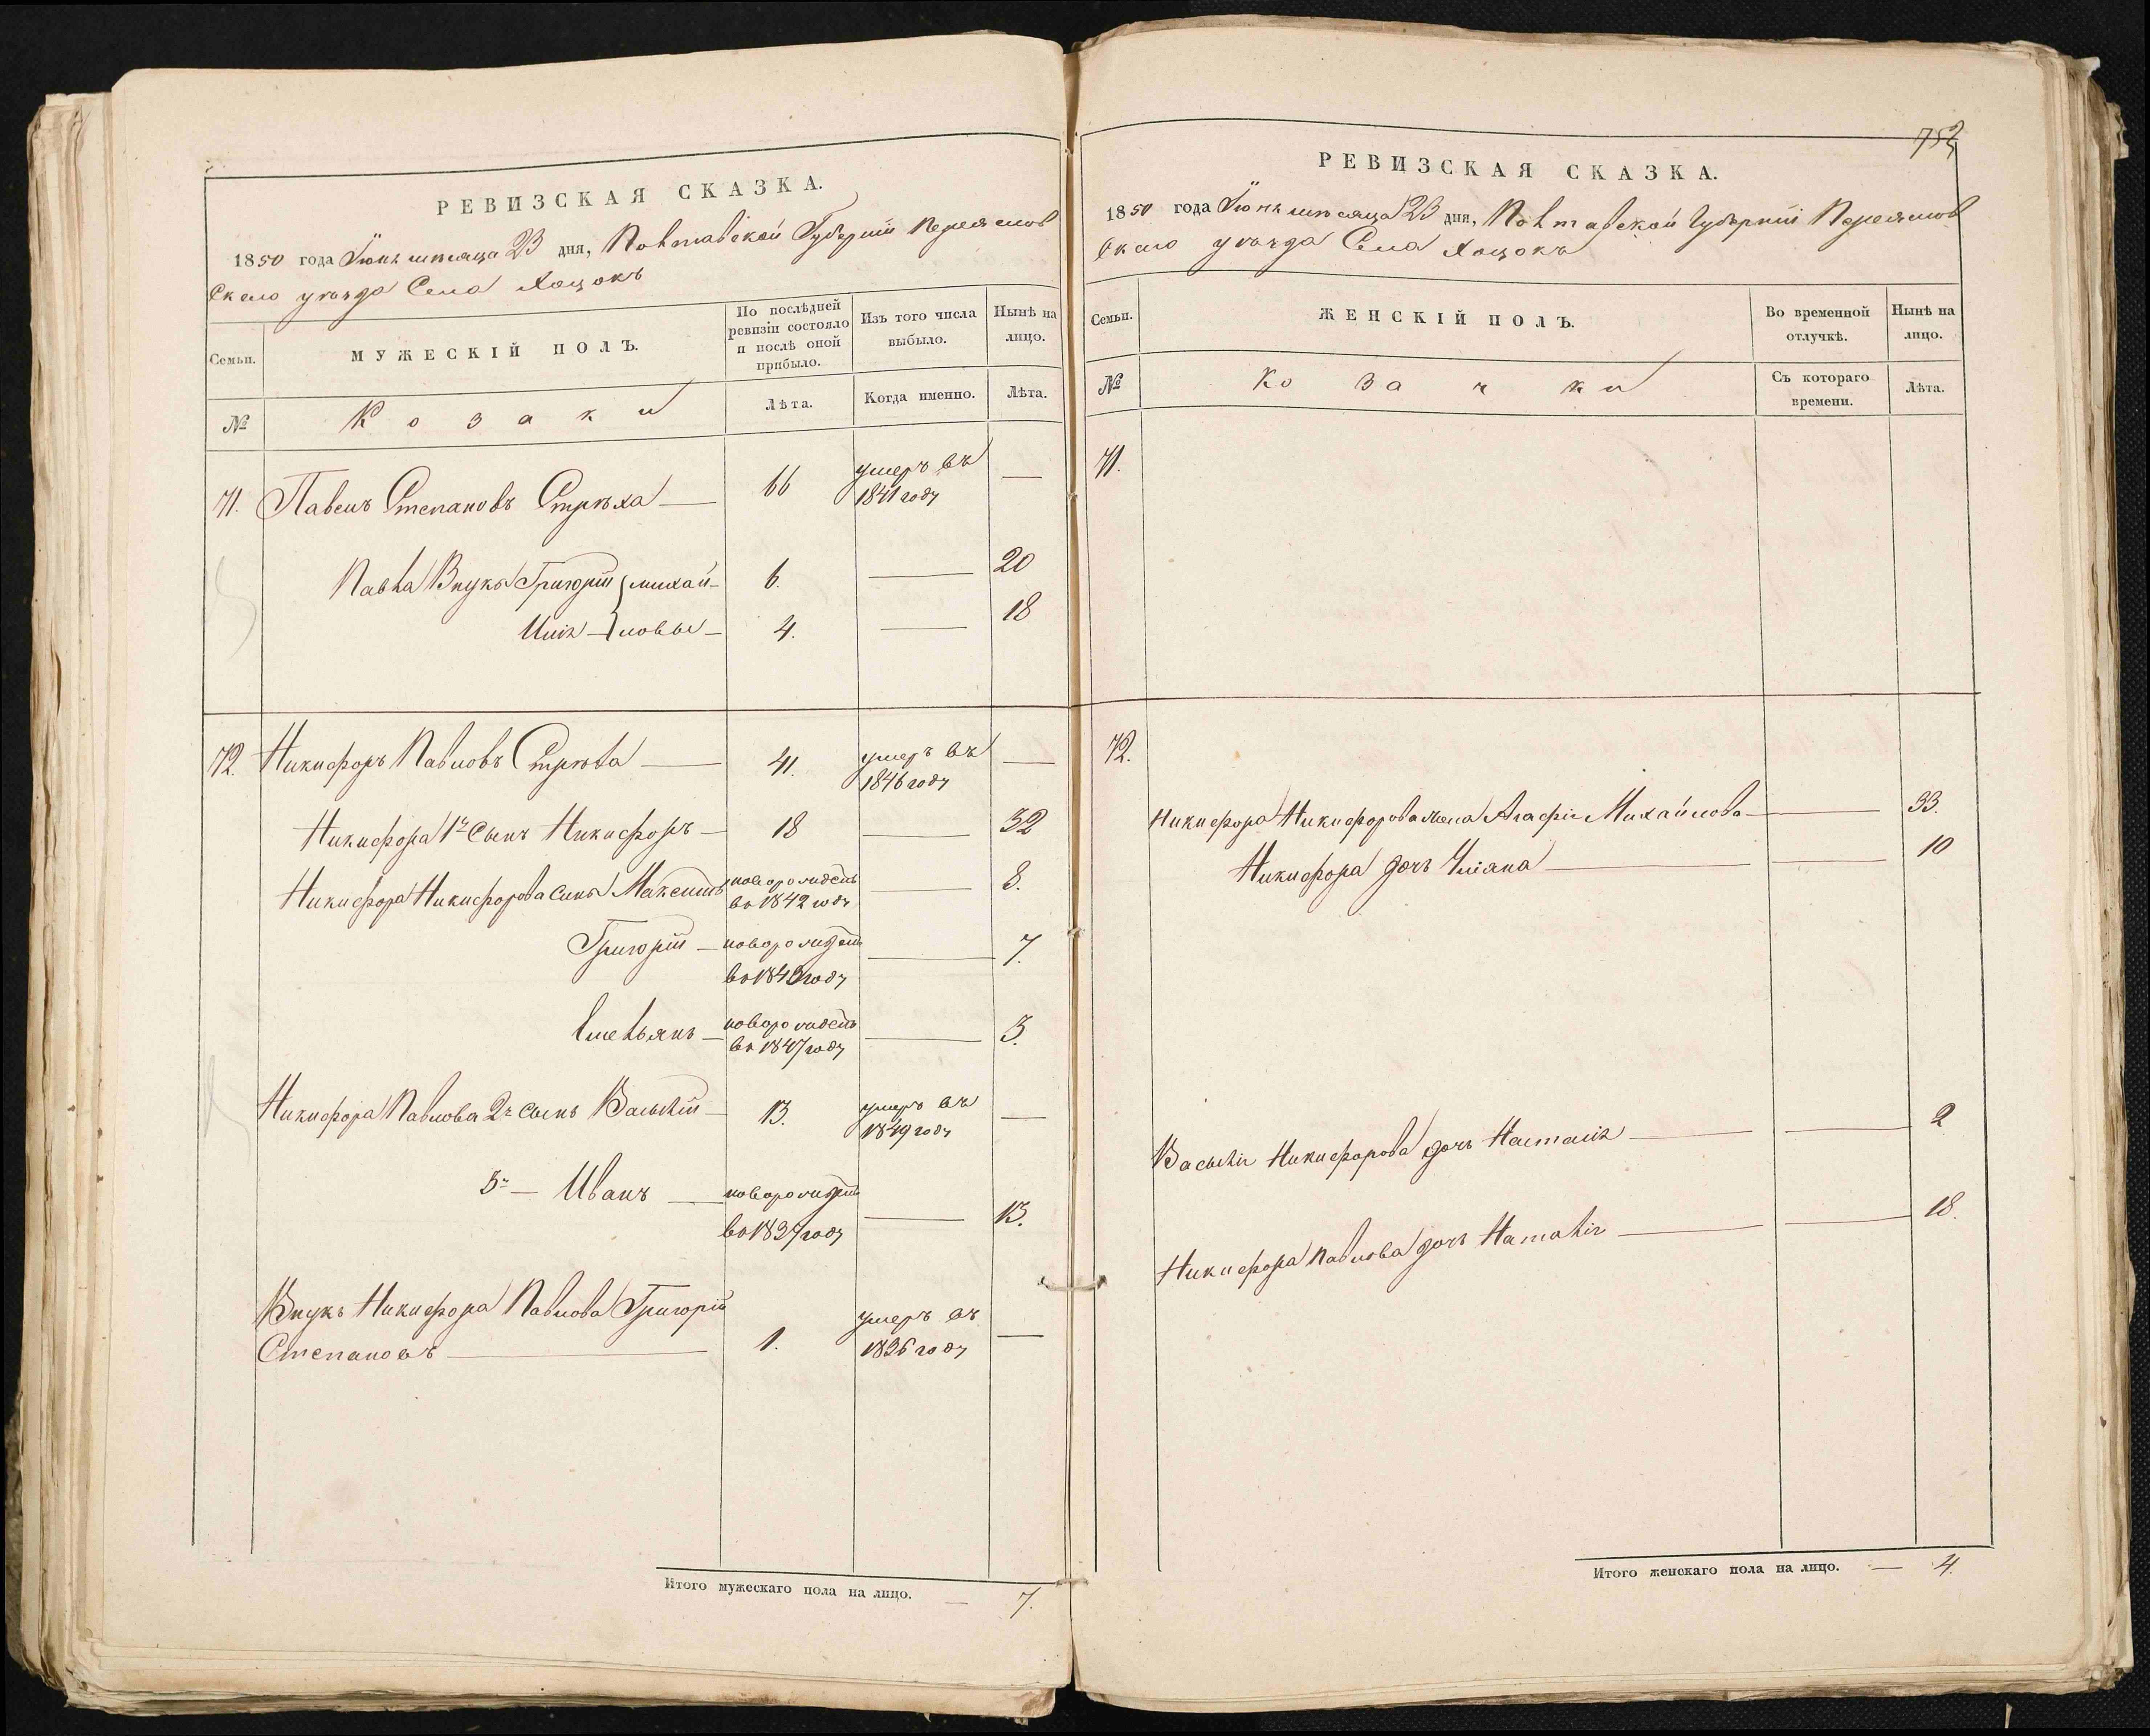 РЕВИЗСКАЯ СКАЗКА.
1850 года Іюня мѣсяца 23 дня, Полтавской Губерніи Переяслов
скаго уѣзда Села Хоцокъ
Семьи.
МУЖЕСКІЙ ПОЛЪ.
По послѣдней
ревизіи состояло
и послѣ оной
прибыло.
Изъ того числа
выбыло.
Нынѣ на
лицо.
№
Козаки
Лѣта.
Когда именно.
Лѣта.
71. Павелъ Степановъ Стрѣха — 66 умеръ въ —
1841 году
Павла Внуки Григорій } михай- 6. — 20
Илія — } ловы — 4. — 18
72. Никифоръ Павловъ Стрѣха — 41. умеръ въ —
1846 году
Никифора 1й Сынъ Никифоръ — 18 — 32
Никифора Никифорова Сынъ Максимъ новорожденъ — 8.
въ 1842 году
Григорій — новорожденъ — 7.
въ 1843 году
Емельянъ — новорожденъ — 3.
въ 1847 году
Никифора Павлова 2й Сынъ Василій — 13. умеръ въ —
1849 году
3й — Иванъ — новорожденъ — 13.
въ 1837 году
Внукъ Никифора Павлова Григорій
Степановъ — 1. умеръ въ —
1836 году
Итого мужескаго пола на лицо. — 7.
РЕВИЗСКАЯ СКАЗКА.
1850 года Іюня мѣсяца 23 дня, Полтавской Губерніи Переяслов
скаго уѣзда Села Хоцокъ
Семьи.
ЖЕНСКІЙ ПОЛЪ.
Во временной
отлучкѣ.
Нынѣ на
лицо.
№
Козачки
Съ котораго
времени.
Лѣта.
71.
72.
Никифора Никифорова жена Агафія Михайлова — — 33.
Никифора дочь Уліяна — — 10
Василія Никифорова дочь Наталія — — 2
Никифора Павлова дочь Наталія — — 18.
Итого женскаго пола на лицо. — 4.